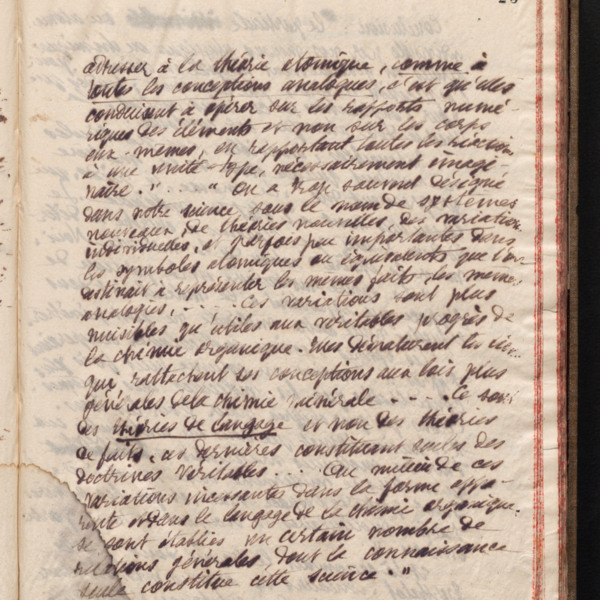 adresser à la théorie atomique, comme à
toutes les conceptions analogues, c'est qu'elles
conduisent à opérer sur les rapports numé
riques des éléments et non sur les corps
eux-mêmes, en rapportant toutes les réactions
à une unité-type, nécessairement imagi
naire." .. " On a trop souvent désigné
dans notre science sous le nom de systèmes
nouveaux de théories nouvelles, des variations
individuelles, et parfois peu importantes dans
les symboles atomiques ou équivalents que l'on
destinait à représenter les mêmes faits, les mêmes
analogies, ..... Ces variations sont plus
nuisibles qu'utiles aux véritables progrès de
la chimie organique. Elles dénaturent les
qui rattachent ses conceptions aux lois plus
générales de la chimie minérale .... Ce sont
des théories de langage et non des théories
de faits, ces dernières constituant seules des
doctrines véritables ... Au milieu de ces
variations incessantes dans la forme appa-
rente et dans le langage de la chimie organique.
se sont établies un certain nombre de
relations générales, dont la connaissance
seule constitue cette science."